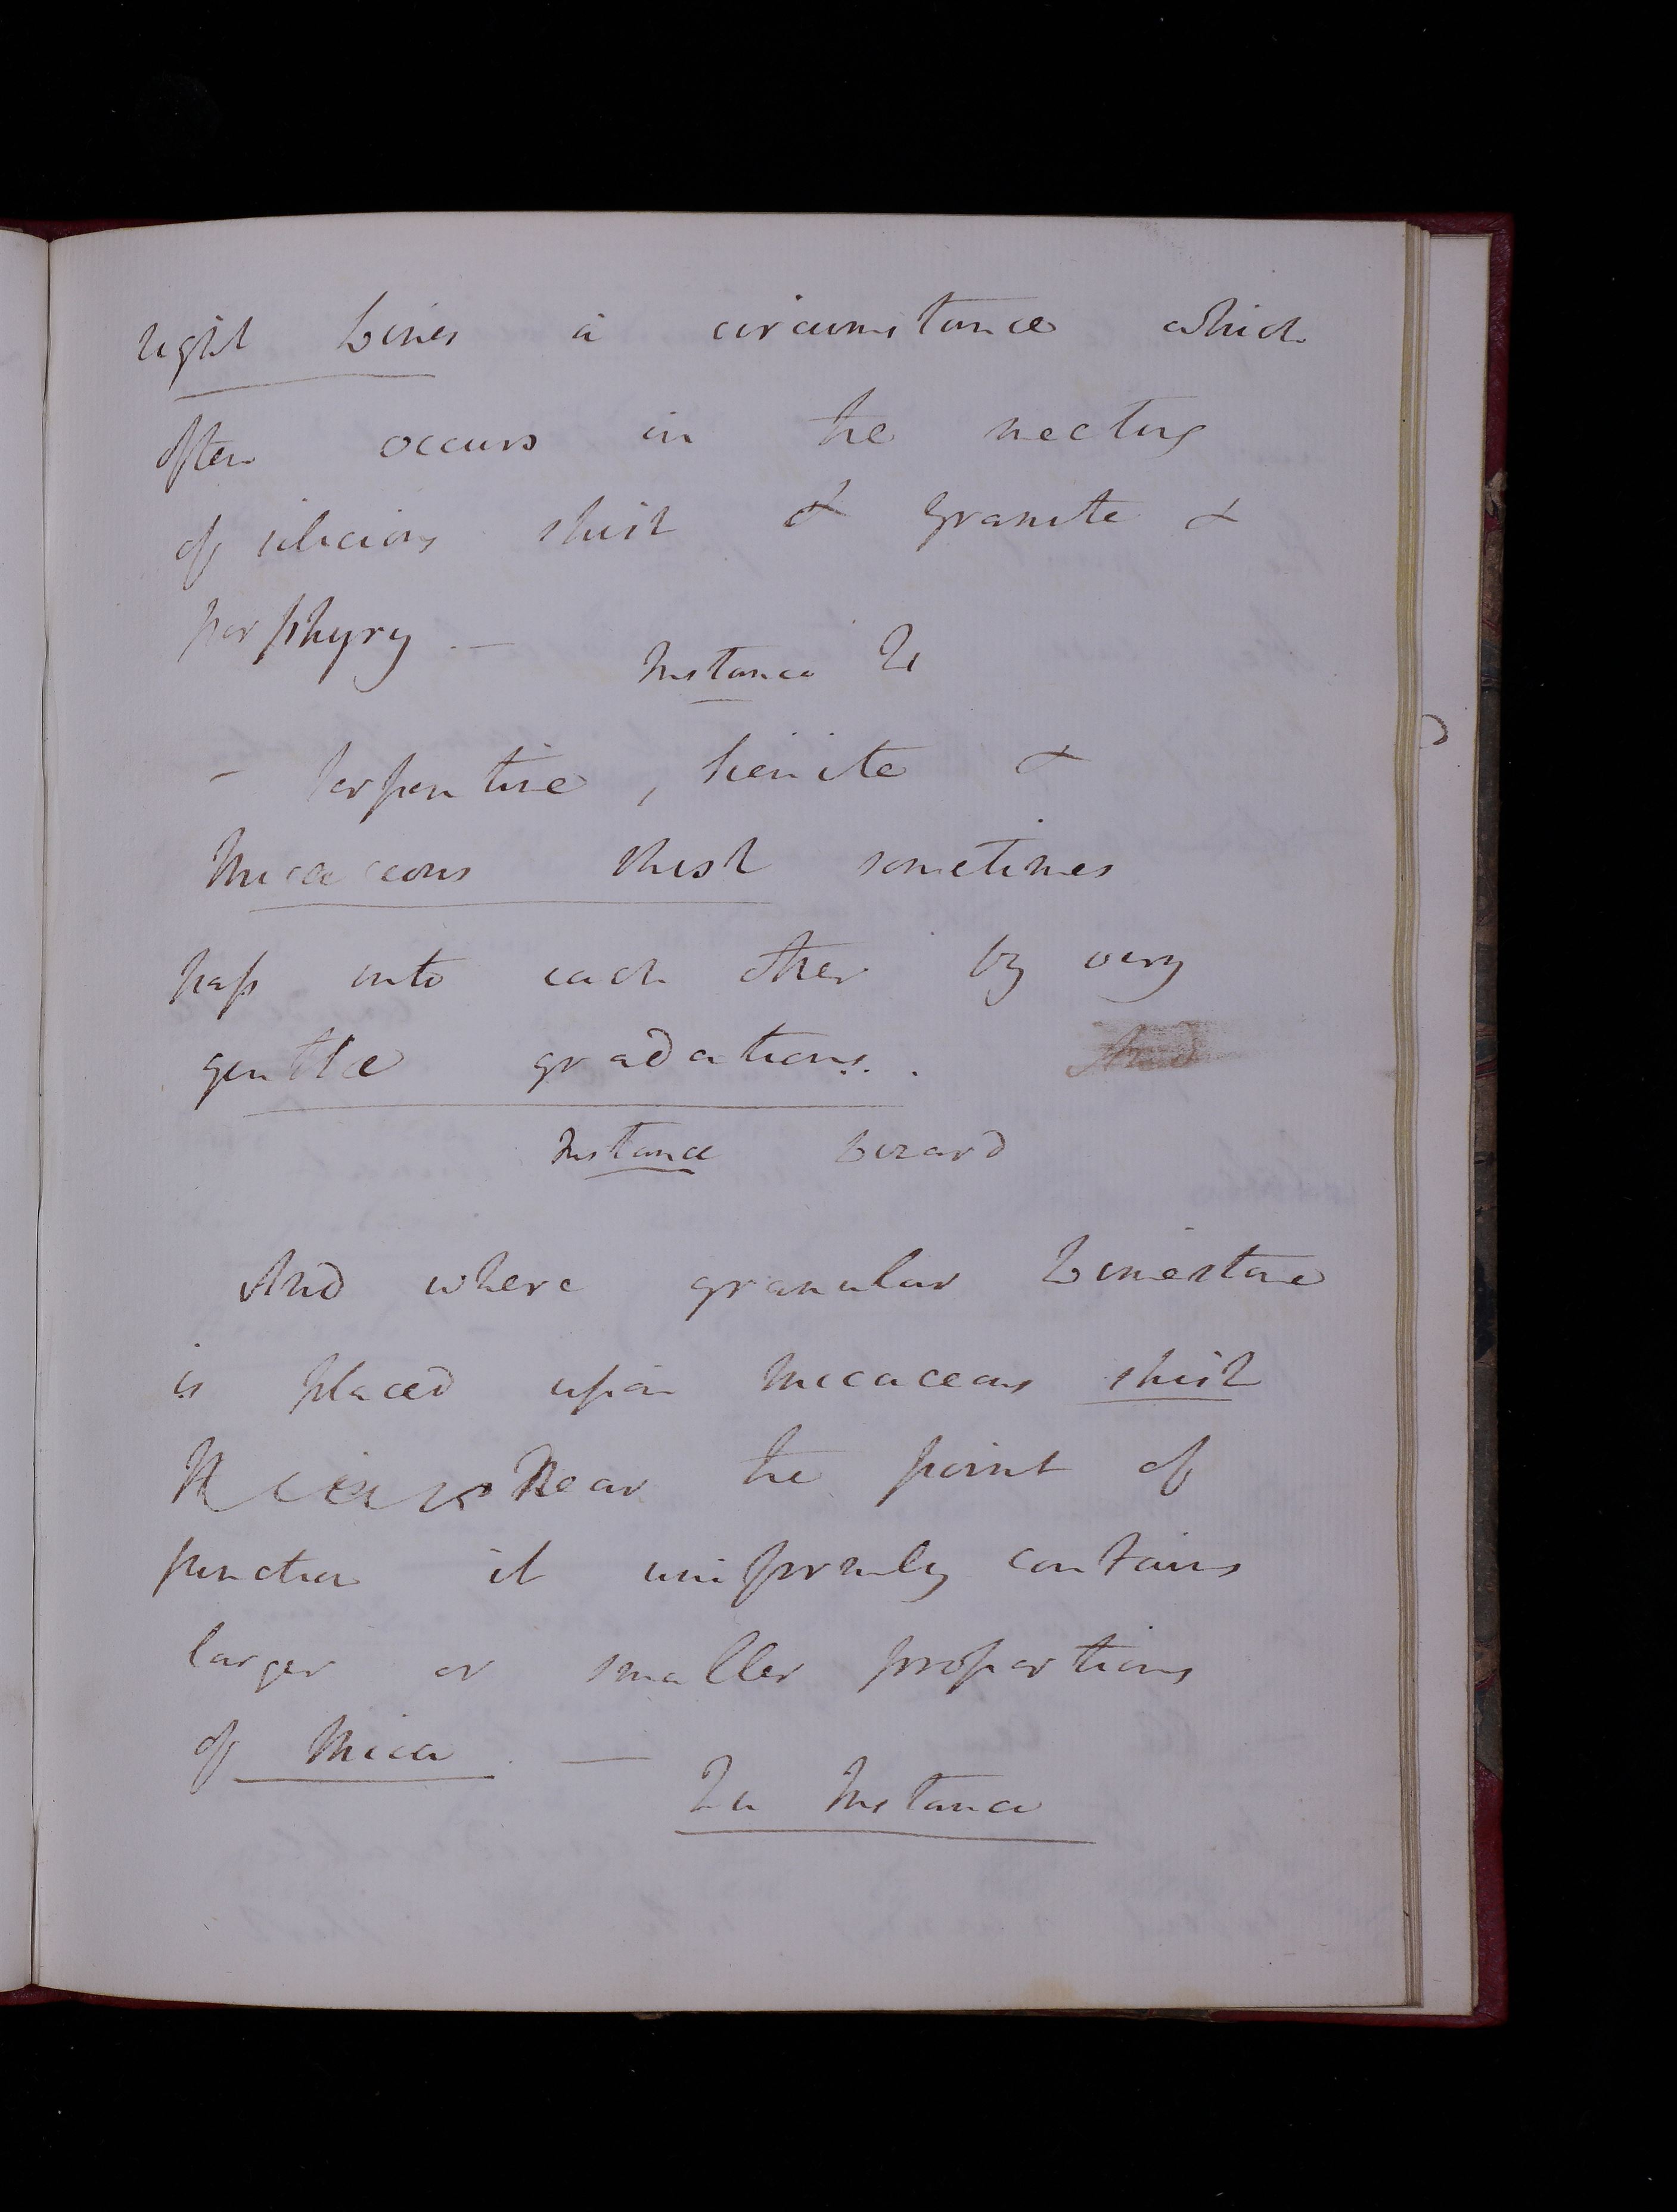 right Lines a circumstance which
often occurs in the meeting
of silicious shist & granite &
porphyry. — Instance
- Serpentine, Sienite &
Micaceous shist sometimes
pass into each other by very
gentle gradations. And
Instance Lizard
And where granular Limestone
is placed upon micaceous shist
Near the point of
junction it uniformly contains
larger or smaller proportions
of Mica. —
In Instance